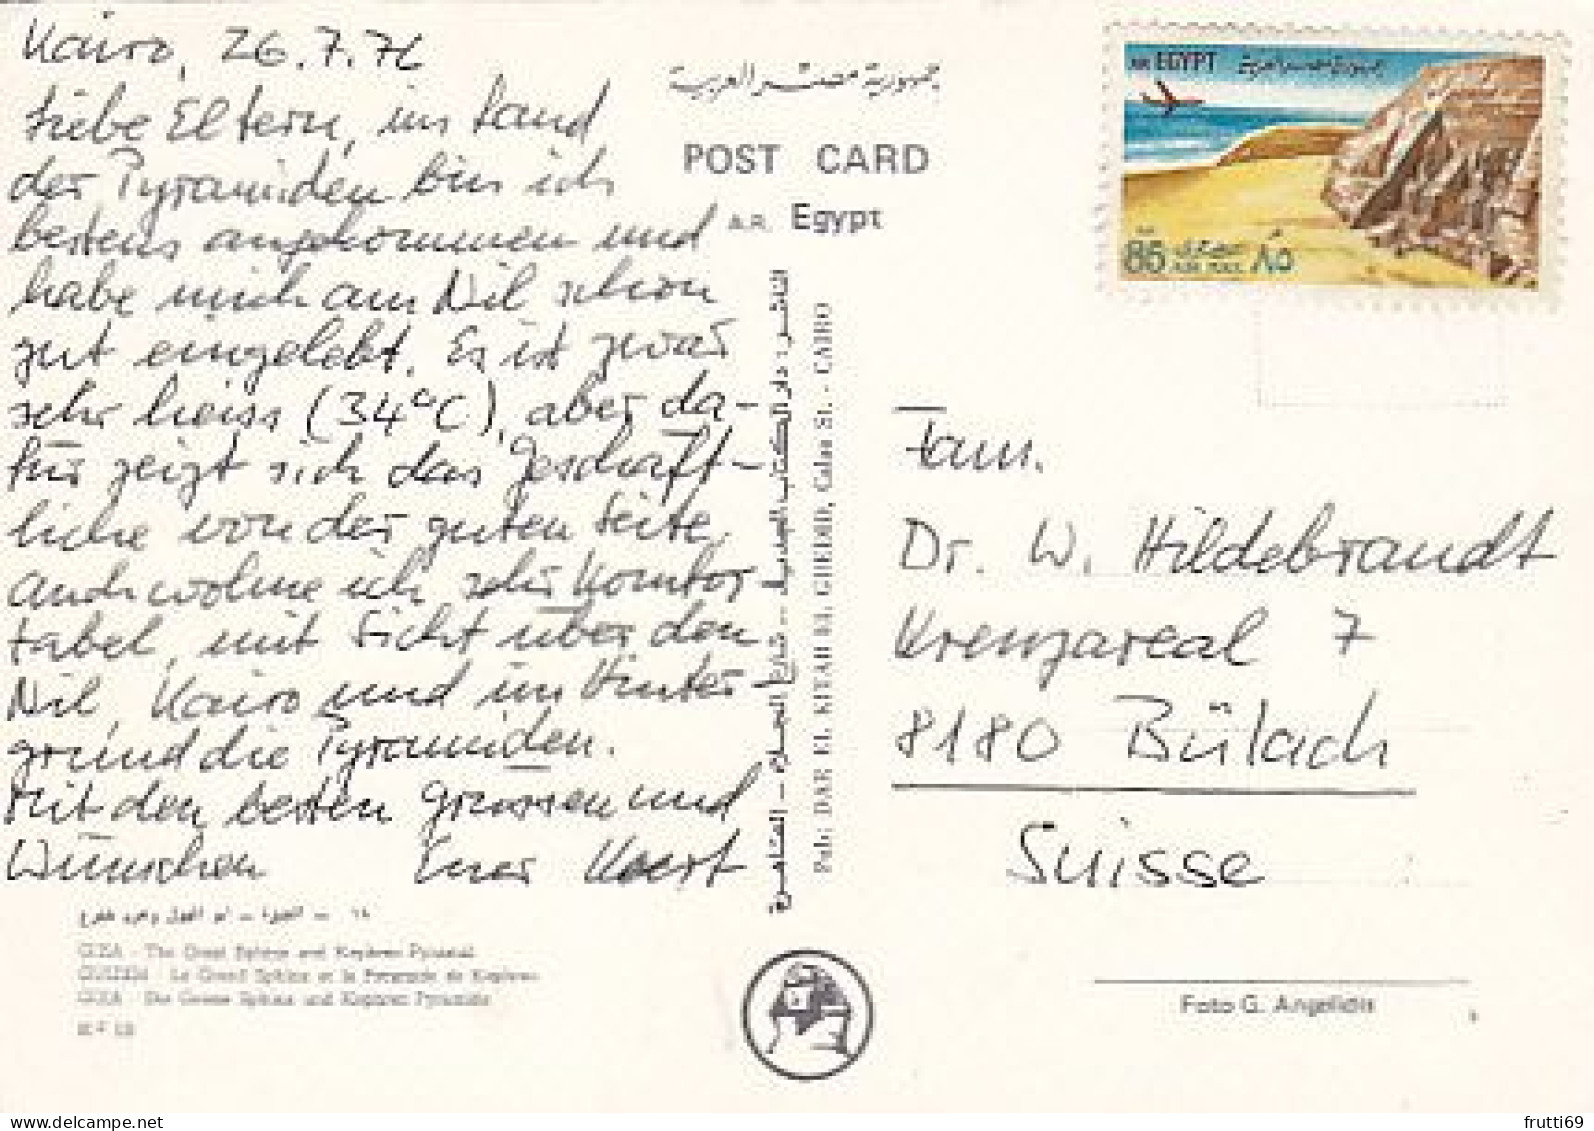 Kairo, 26.7.76
Liebe Eltern, im Land
der Pyramiden bin ich
bestens angekommen und
habe mich am Nil schon
gut eingelebt. Es ist zwar
sehr heiss (34°C), aber da-
für zeigt sich das Geschäft-
liche von der guten Seite.
Auch wohne ich sehr komfor-
tabel, mit Sicht über den
Nil, Kairo und im Hinter-
grund die Pyramiden.
Mit den besten Grüssen und
Wünschen Euer
جمهورية مصر العربية
POST CARD
A.R. Egypt
الناشر: دار الكتاب الجديد - شارع الجلاء - القاهرة
Pub: DAR EL KITAB EL GUEDID, Galaa St. - CAIRO
AR EGYPT
85 AIR MAIL ٨٥
Fam.
Dr. W. Hildebrandt
Kreuzareal 7
8180 Bülach
Suisse
١٨ - الجيزة - أبو الهول وهرم خفرع
GIZA - The Great Sphinx and Kephren Pyramid
GUIZEH - Le Grand Sphinx et la Pyramide de Kephren
GIZA - Die Grosse Sphinx und Kephren Pyramide
Foto G. Angelidis
frutti69